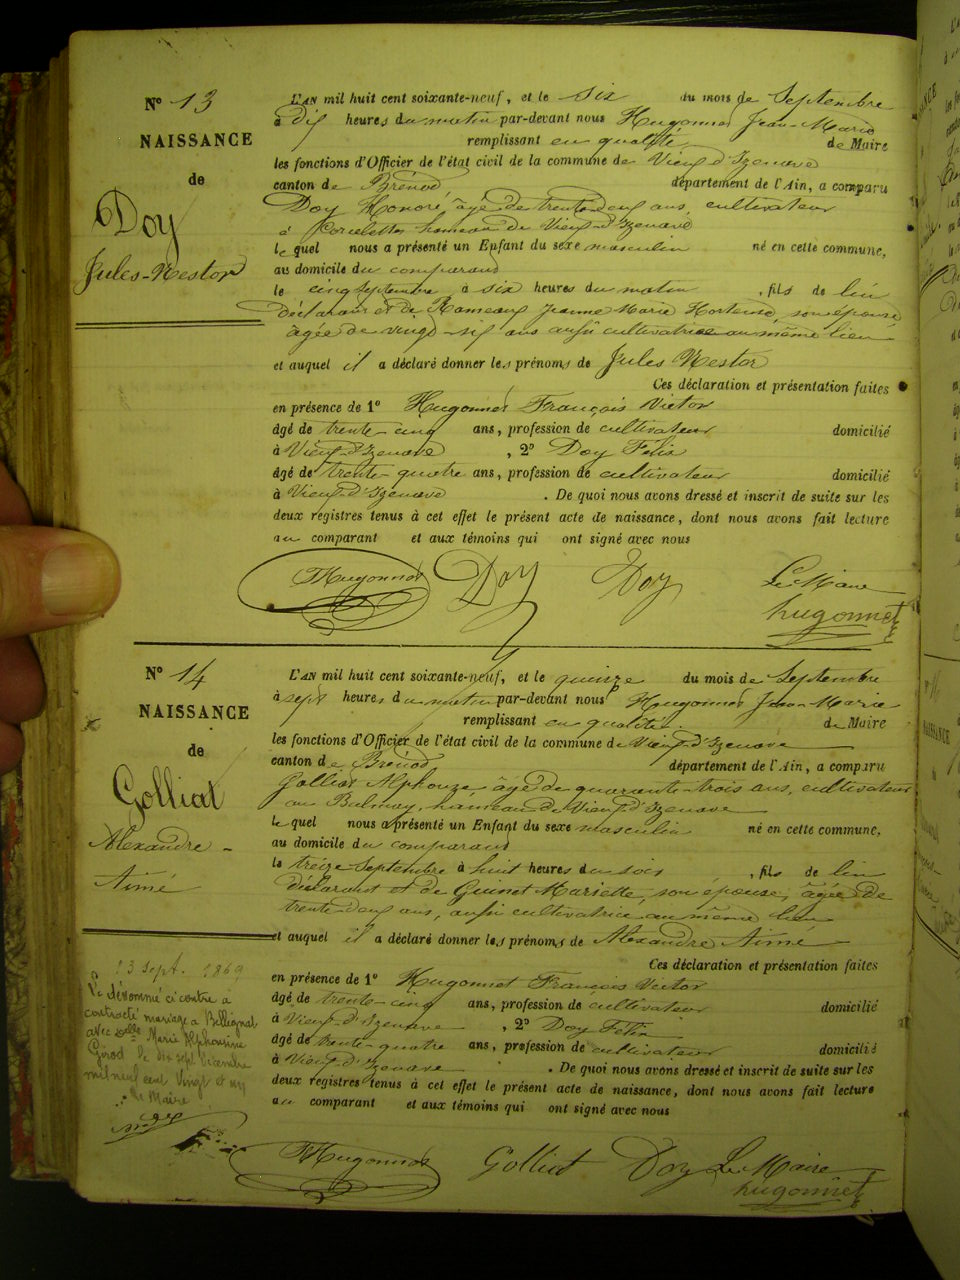 N° 13
NAISSANCE
de
Doy
Jules-Nestor
L'AN mil huit cent soixante-neuf, et le six du mois de Septembre
à dix heures du matin par-devant nous Hugonnet Jean-Marie
remplissant en qualité de Maire
les fonctions d'Officier de l'état civil de la commune de Vieux-d'Izenave
canton de Brénod département de l'Ain, a comparu
Doy Honoré, âgé de trente-deux ans, cultivateur
à Corcelette hameau de Vieux-d'Izenave
lequel nous a présenté un Enfant du sexe masculin né en cette commune,
au domicile du comparant
le cinq septembre à six heures du matin, fils de lui
déclarant et de Rameaux Jeanne Marie Hortense, son épouse
âgée de vingt-six ans aussi cultivatrice au même lieu
et auquel il a déclaré donner les prénoms de Jules Nestor
Ces déclaration et présentation faites
en présence de 1° Hugonnet François Victor
âgé de trente-cinq ans, profession de cultivateur domicilié
à Vieux-d'Izenave, 2° Doy Félix
âgé de trente-quatre ans, profession de cultivateur domicilié
à Vieux-d'Izenave. De quoi nous avons dressé et inscrit de suite sur les
deux registres tenus à cet effet le présent acte de naissance, dont nous avons fait lecture
au comparant et aux témoins qui ont signé avec nous
Hugonnet Doy Doy Le Maire
hugonnet
N° 14
NAISSANCE
de
Golliat
Alexandre-
Aimé
L'AN mil huit cent soixante-neuf, et le quinze du mois de Septembre
à sept heures du matin par-devant nous Hugonnet Jean-Marie
remplissant en qualité de Maire
les fonctions d'Officier de l'état civil de la commune de Vieux-d'Izenave
canton de Brénod département de l'Ain, a comparu
Golliat Alphonze, âgé de quarante-trois ans, cultivateur
au Balmay, hameau de Vieux-d'Izenave
lequel nous a présenté un Enfant du sexe masculin né en cette commune,
au domicile du comparant
le treize Septembre à huit heures du soir, fils de lui
déclarant et de Guinet Mariette, son épouse, âgée de
trente-deux ans, aussi cultivatrice au même lieu
et auquel il a déclaré donner les prénoms de Alexandre Aimé
Ces déclaration et présentation faites
en présence de 1° Hugonnet François Victor
âgé de trente-cinq ans, profession de cultivateur domicilié
à Vieux-d'Izenave, 2° Doy Félix
âgé de trente-quatre ans, profession de cultivateur domicilié
à Vieux-d'Izenave. De quoi nous avons dressé et inscrit de suite sur les
deux registres tenus à cet effet le présent acte de naissance, dont nous avons fait lecture
au comparant et aux témoins qui ont signé avec nous
Hugonnet Golliat Doy Le Maire
hugonnet
13 Sept. 1869
Le dénommé ci contre a
contracté mariage à Bellignat
avec Delle Marie Alphonsine
Girod le dix sept Décembre
mil neuf cent vingt et un
Le Maire